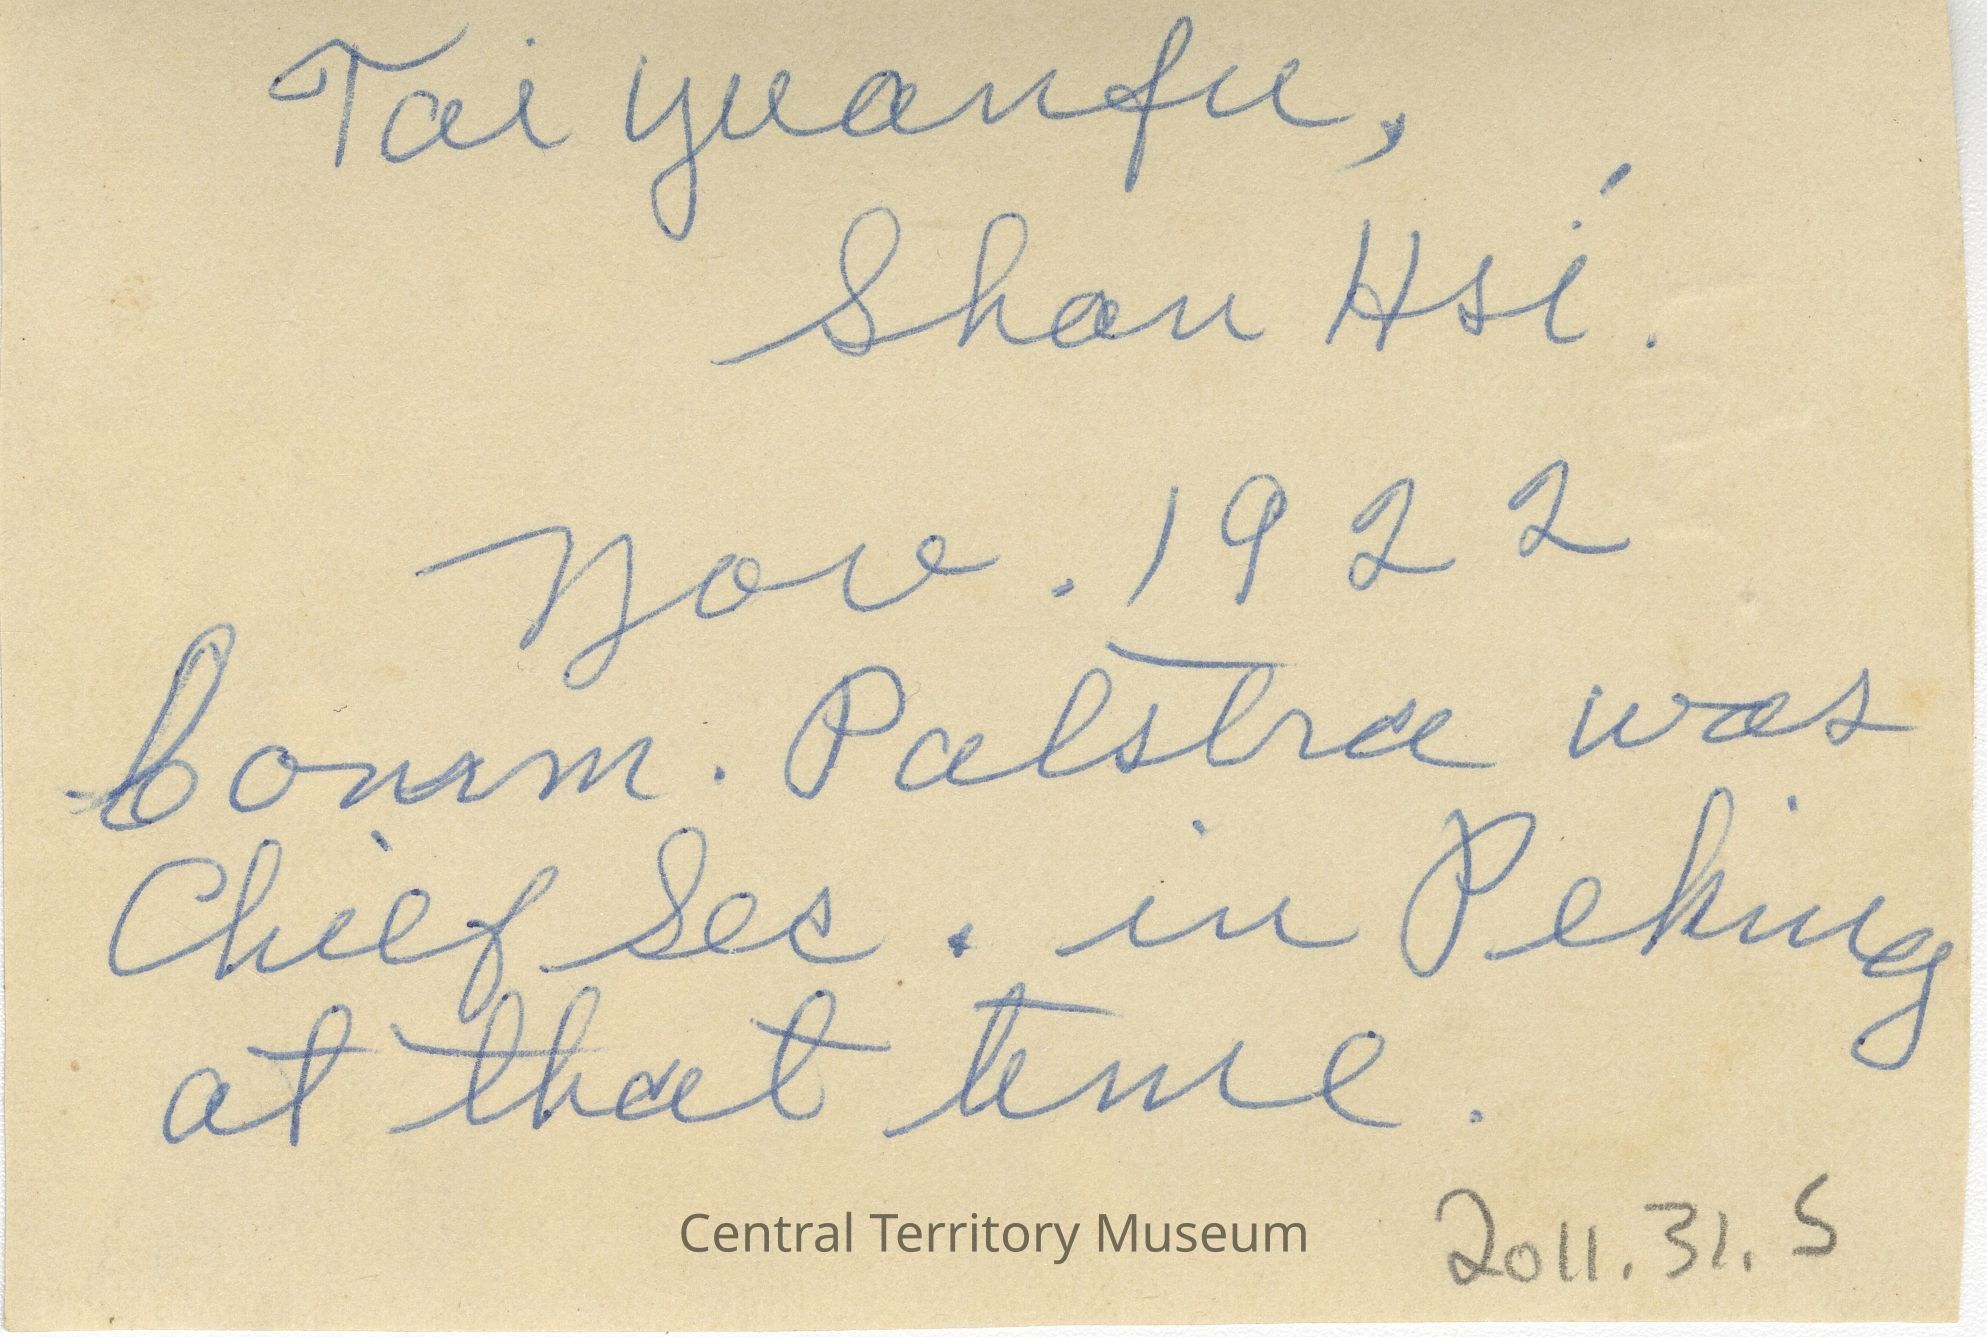 Tai yuanfu,
Shan Hsi.
Nov. 1922
Comm. Palstra was
Chief Sec. in Peking
at that time.
Central Territory Museum
2011.31.5